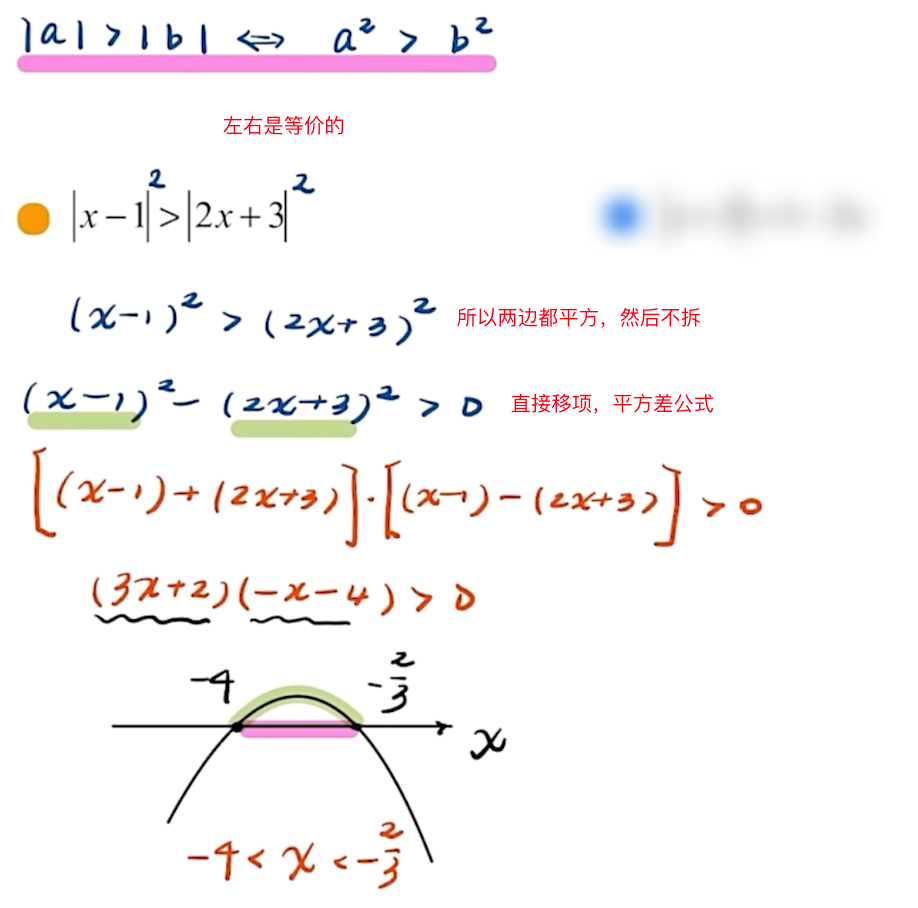 |a| > |b| ⟺ a² > b²
左右是等价的
|x−1|² > |2x+3|²
(x−1)² > (2x+3)² 所以两边都平方，然后不拆
(x−1)² − (2x+3)² > 0 直接移项，平方差公式
[(x−1)+(2x+3)]·[(x−1)−(2x+3)] > 0
(3x+2)(−x−4) > 0
−4 −2/3
x
−4 < x < −2/3